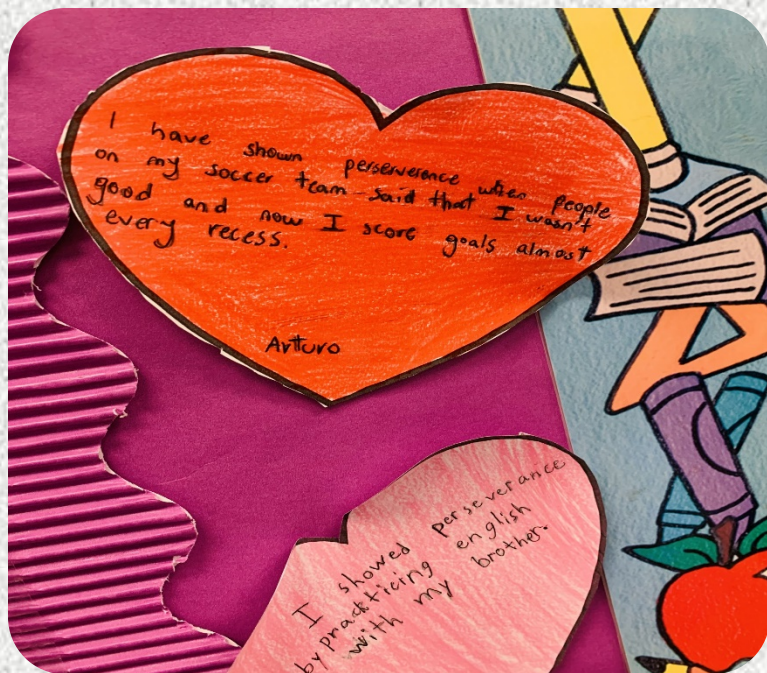 I have shown perserverence when people
on my soccer team said that I wasn't
good and now I score goals almost
every recess.
Artturo
I showed perseverance
by practicing english
with my brother.